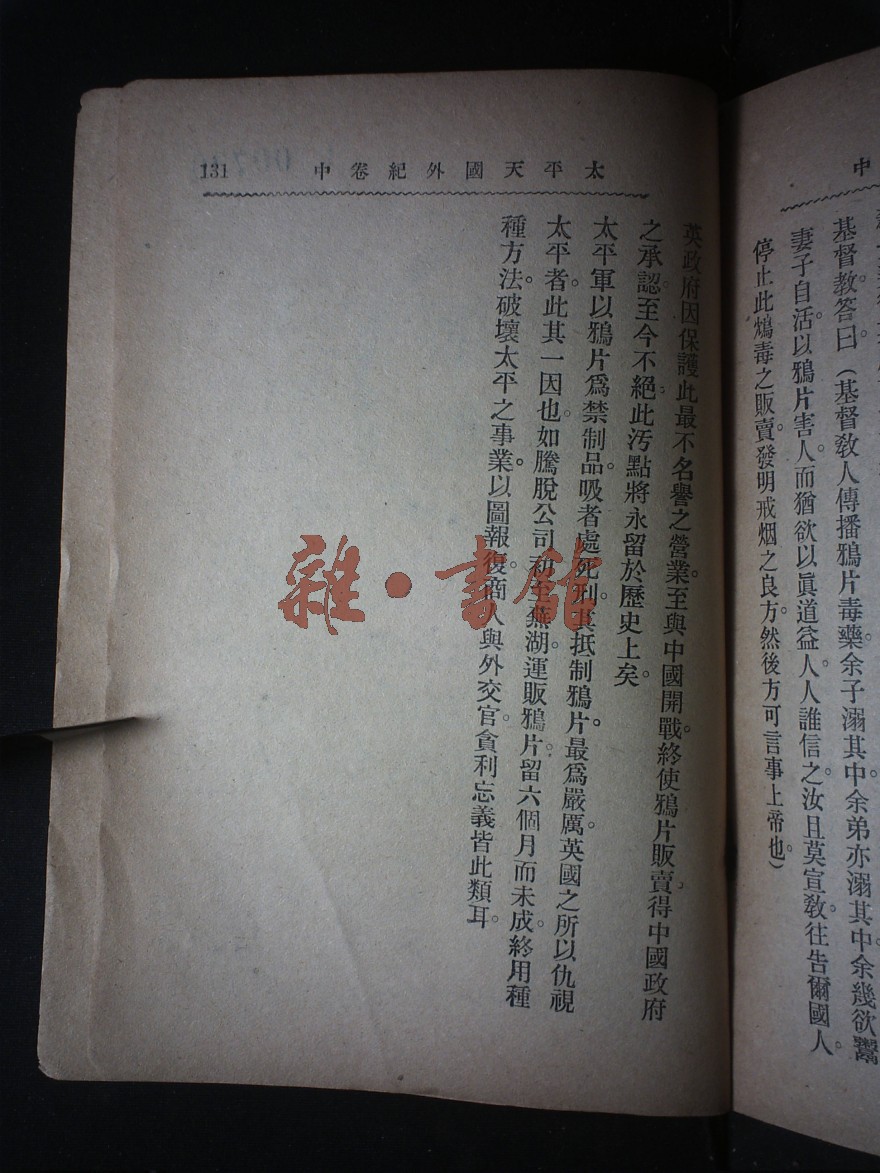 中
基督教答曰（基督教人傳播鴉片毒藥余子溺其中。余弟亦溺其中。余幾欲鬻
妻子自活。以鴉片害人。而猶欲以眞道益人。人誰信之。汝且莫宣教。往告爾國人。
停止此鴆毒之販賣。發明戒烟之良方。然後方可言事上帝也。）
太平天國外紀卷中 131
英政府因保護此最不名譽之營業。至與中國開戰。終使鴉片販賣。得中國政府
之承認。至今不絕。此汚點將永留於歷史上矣。
太平軍以鴉片爲禁制品。吸者處死刑。其抵制鴉片。最爲嚴厲。英國之所以仇視
太平者。此其一因也。如騰脫公司初至蕪湖。運販鴉片。留六個月而未成。終用種
種方法。破壞太平之事業。以圖報復。商人與外交官。貪利忘義皆此類耳。
雜·書館